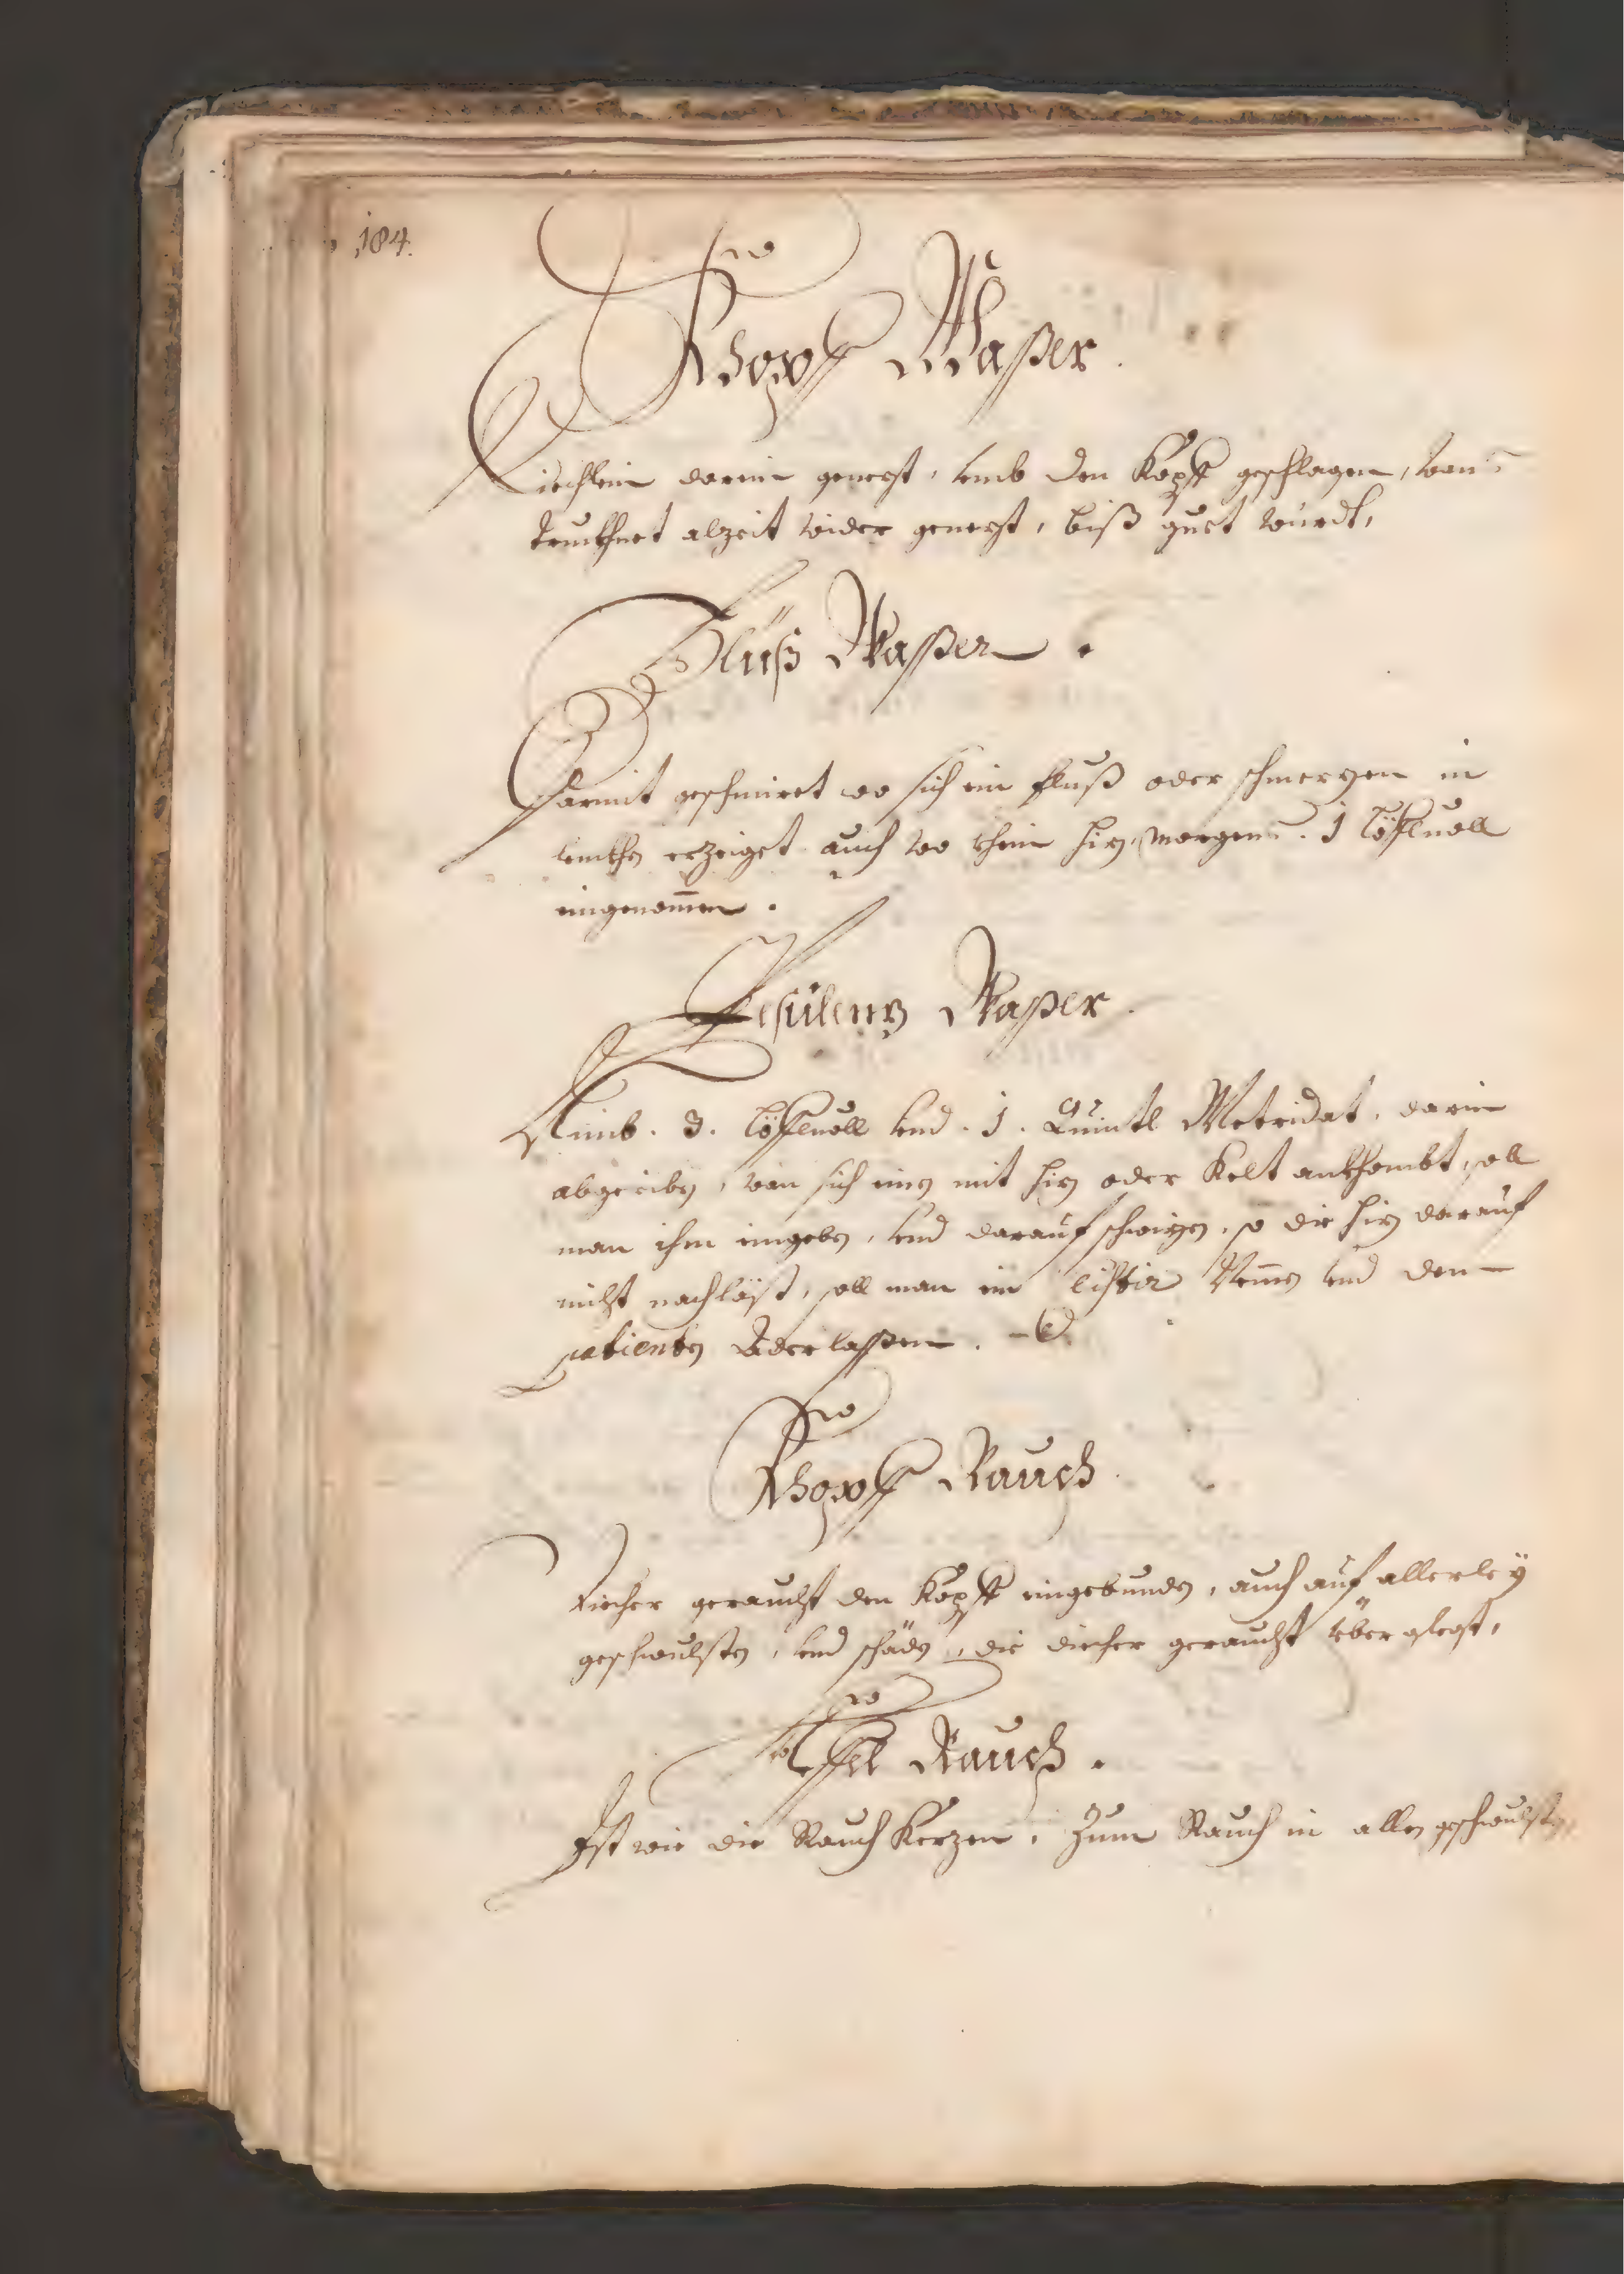 184.
Khopff Waßer.
Tiechlein darein genezt, umb den Kopff geschlagen, wans
truckhnet alzeit wider genezt, biß guet würdt,
Fluß Waßer.
Darmit geschmiret wo sich ein fluß oder schmerzen in
erzeiget auch wo khein hiz, morgens. 1 löffluoll
eingenomen.
Pesülenz Waßer.
Nimb. 3. löffluoll und. 1. Quintl Metridat, darin
abgeriben, wan sich eins mit hiz oder Kelt ankhombt, soll
man ihm eingeben, und darauf schwizen, so die hiz darauf
nicht nachläst, soll man ein Cristir Nemen und den
patienten Aderlaßen.
Khopff Rauch.
Tiecher geraucht den Kopff eingebunden, auch auf allerley
geschwulsten, und schäden, die diecher geraucht über glegt,
Rauch.
Ist wie die Rauch Kerzen, Zum Rauch in allen geschwulsten